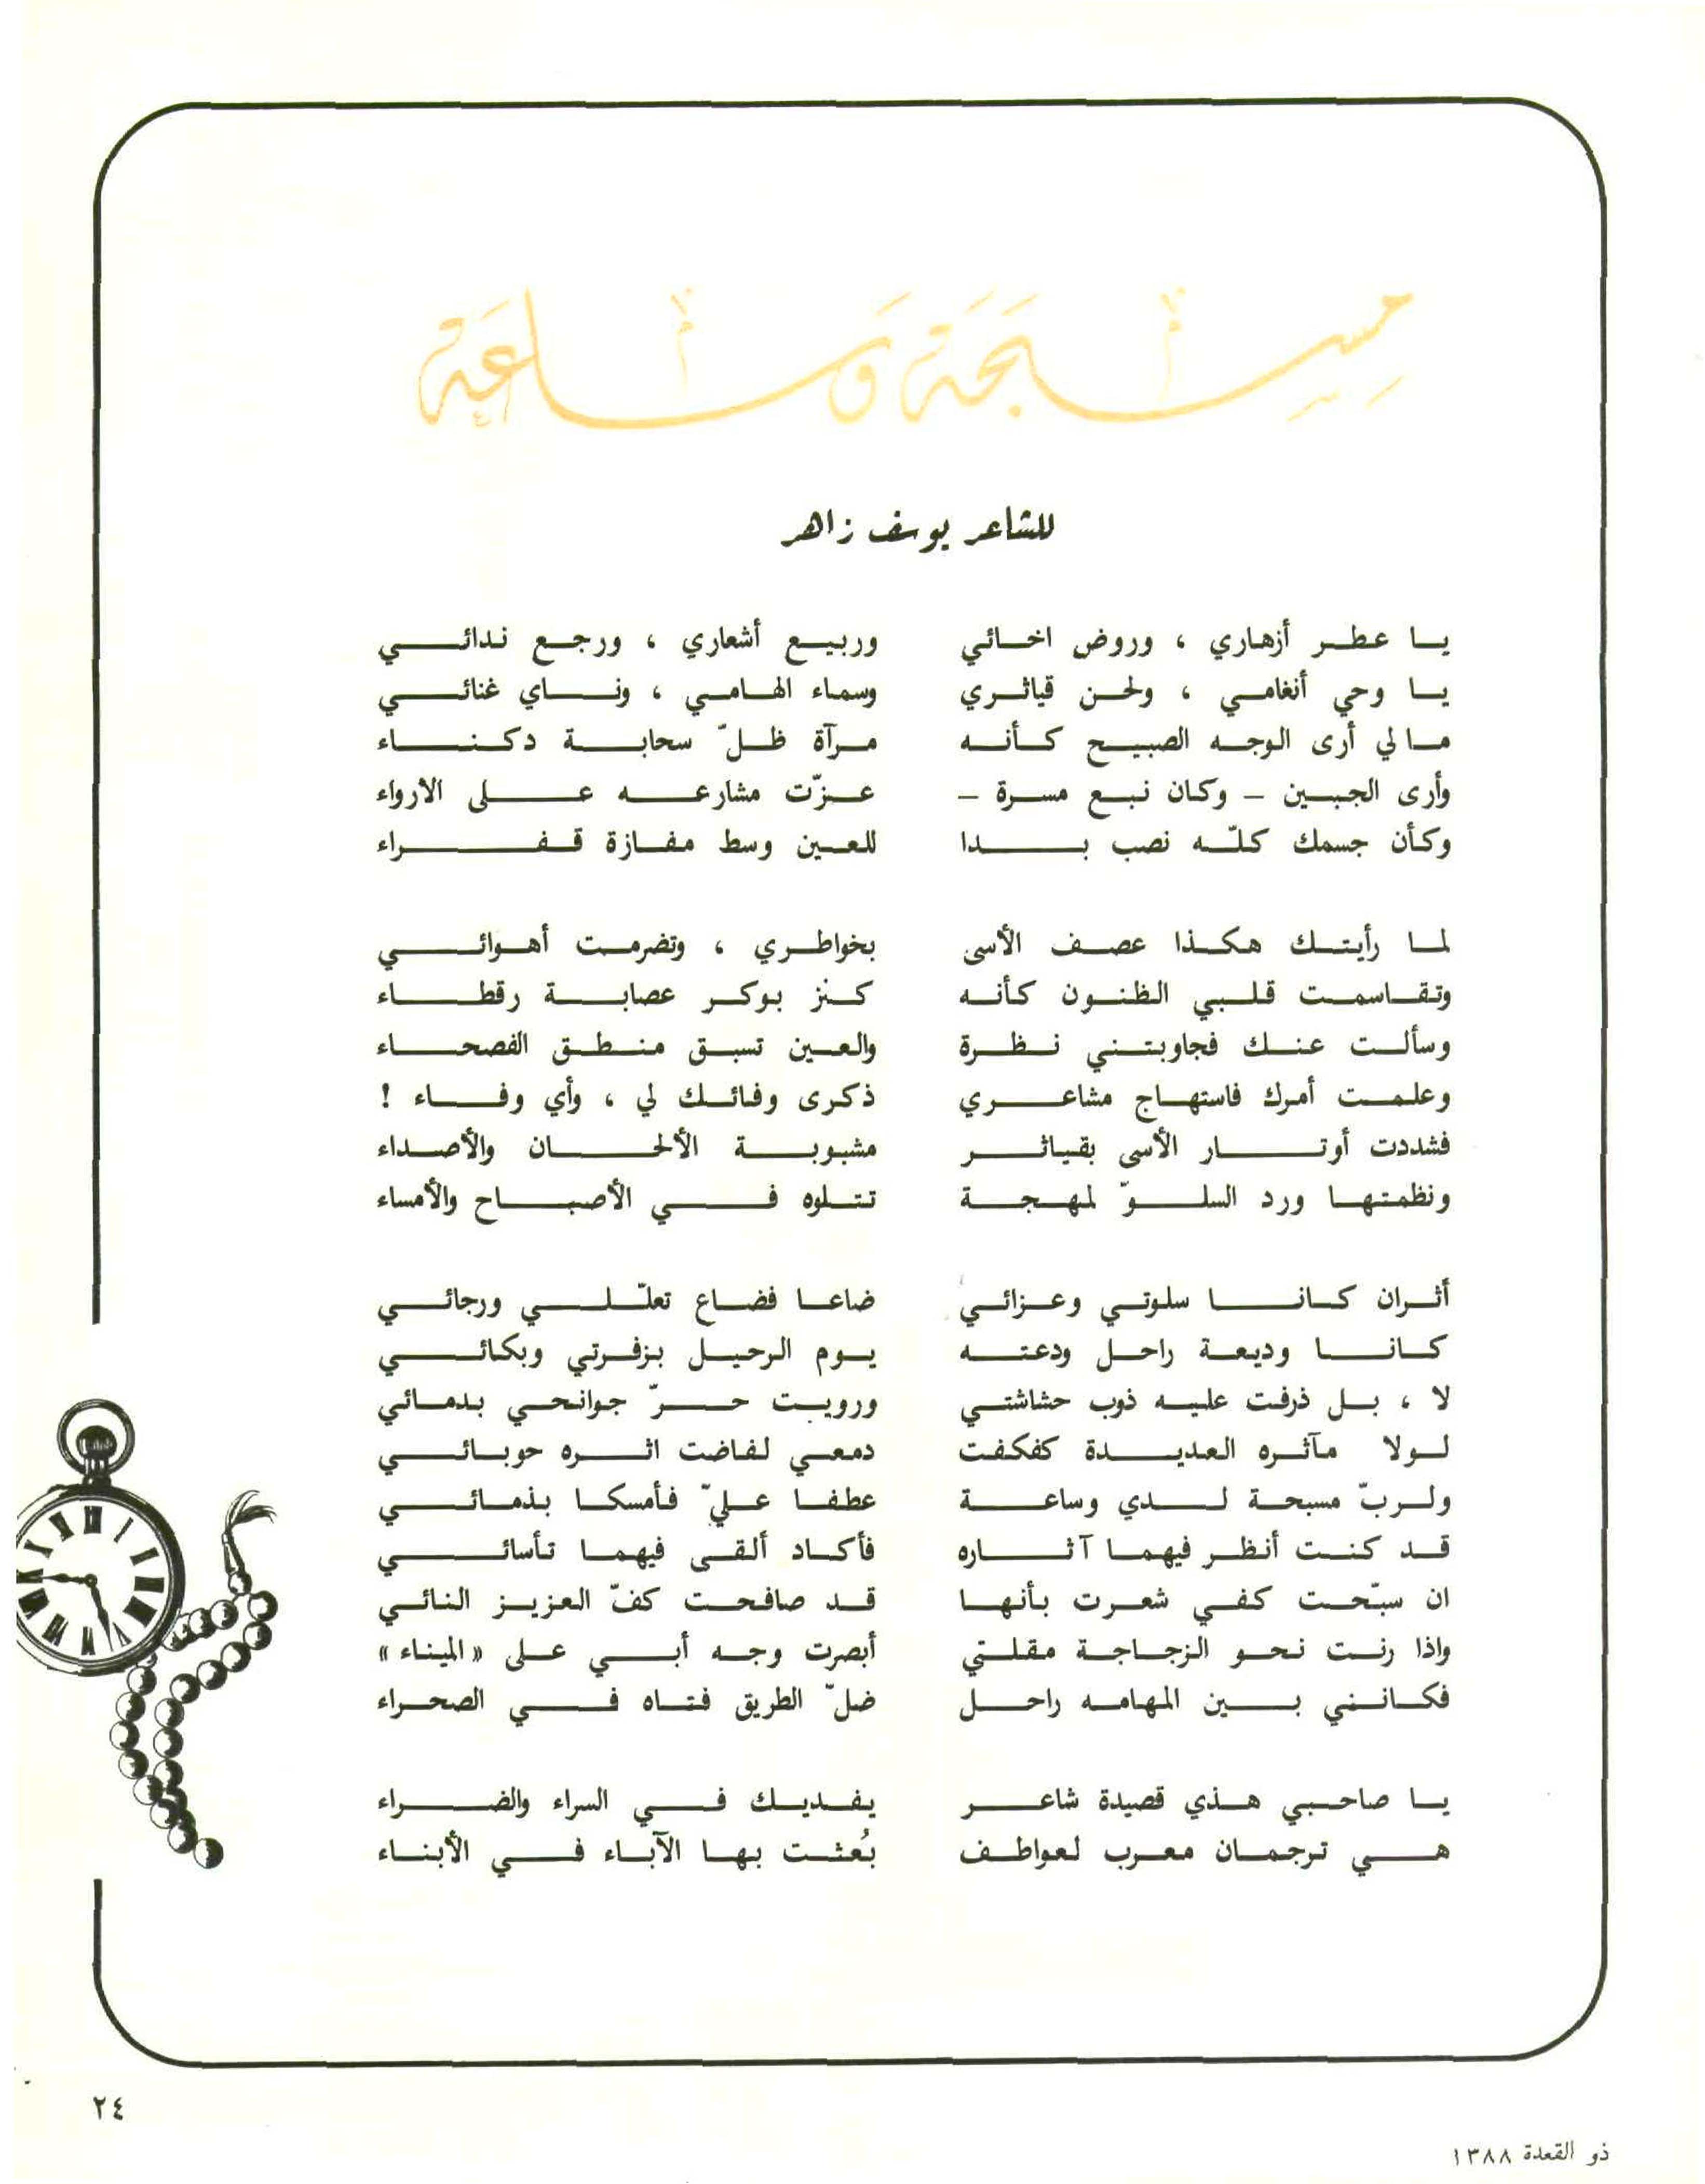 مِسْبَحَة وَسَاعَة
للشاعر يوسف زاهر
يا عطر أزهاري ، وروض اخائي وربيع أشعاري ، ورجع ندائي
يا وحي أنغامي ، ولحن قياثري وسماء الهامي ، وناي غنائي
ما لي أرى الوجه الصبيح كأنه مرآة ظلّ سحابة دكناء
وأرى الجبين – وكان نبع مسرة – عزّت مشارعه على الارواء
وكأن جسمك كلّه نصب بدا للعين وسط مفازة قفراء
لما رأيتك هكذا عصف الأسى بخواطري ، وتضرمت أهوائي
وتقاسمت قلبي الظنون كأنه كنز بوكر عصابة رقطاء
وسألت عنك فجاوبتني نظرة والعين تسبق منطق الفصحاء
وعلمت أمرك فاستهاج مشاعري ذكرى وفائك لي ، وأي وفاء !
فشددت أوتار الأسى بقياثر مشبوبة الألحان والأصداء
ونظمتها ورد السلوّ لمهجة تتلوه في الأصباح والأمساء
أثران كانا سلوتي وعزائي ضاعا فضاع تعلّلي ورجائي
كانا وديعة راحل ودعته يوم الرحيل بزفرتي وبكائي
لا ، بل ذرفت عليه ذوب حشاشتي ورويت حرّ جوانحي بدمائي
لولا مآثره العديدة كفكفت دمعي لفاضت اثره حوبائي
ولربّ مسبحة لدي وساعة عطفا عليّ فأمسكا بذمائي
قد كنت أنظر فيهما آثاره فأكاد ألقى فيهما تأسائي
ان سبّحت كفي شعرت بأنها قد صافحت كفّ العزيز النائي
واذا رنت نحو الزجاجة مقلتي أبصرت وجه أبي على «الميناء»
فكانني بين المهامه راحل ضلّ الطريق فتاه في الصحراء
يا صاحبي هذي قصيدة شاعر يفديك في السراء والضراء
هي ترجمان معرب لعواطف بُعثت بها الآباء في الأبناء
٢٤
ذو القعدة ١٣٨٨